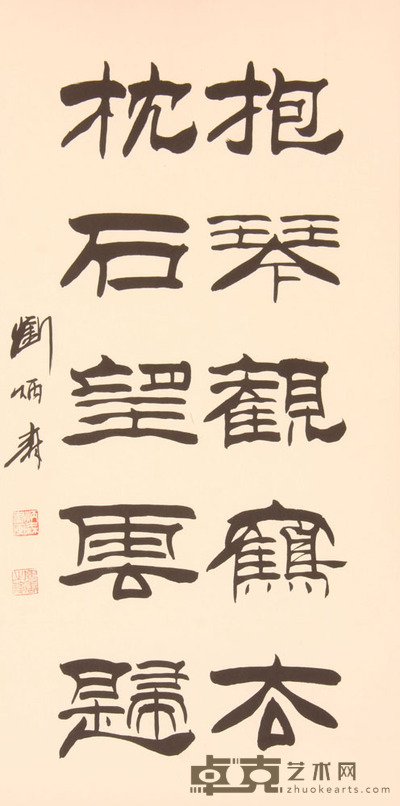 抱琴觀鶴去
枕石望雲歸
劉炳森
卓克艺术网
zhuokearts.com